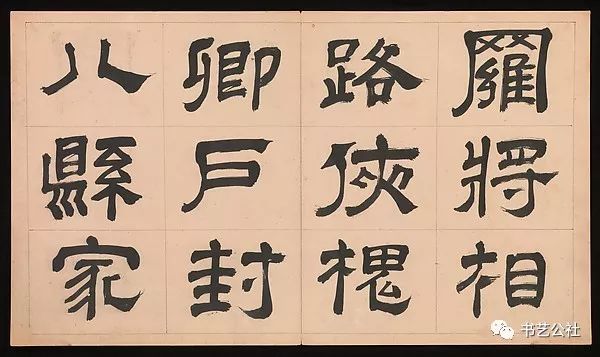 羅將相
路俠槐
卿戶封
八縣家
书艺公社